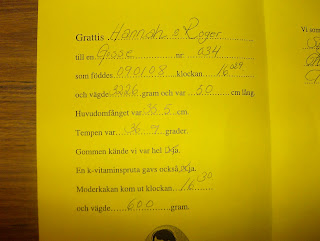 Grattis Hannah & Roger
till en Gosse nr. 034
som föddes 090108 klockan 16 029
och vägde 3226 gram och var 50 cm lång.
Huvudomfånget var 35 5 cm.
Tempen var 36 9 grader.
Gommen kände vi var hel ja.
En k-vitaminspruta gavs också, ja.
Moderkakan kom ut klockan 16 30
och vägde 600 gram.
Vi som